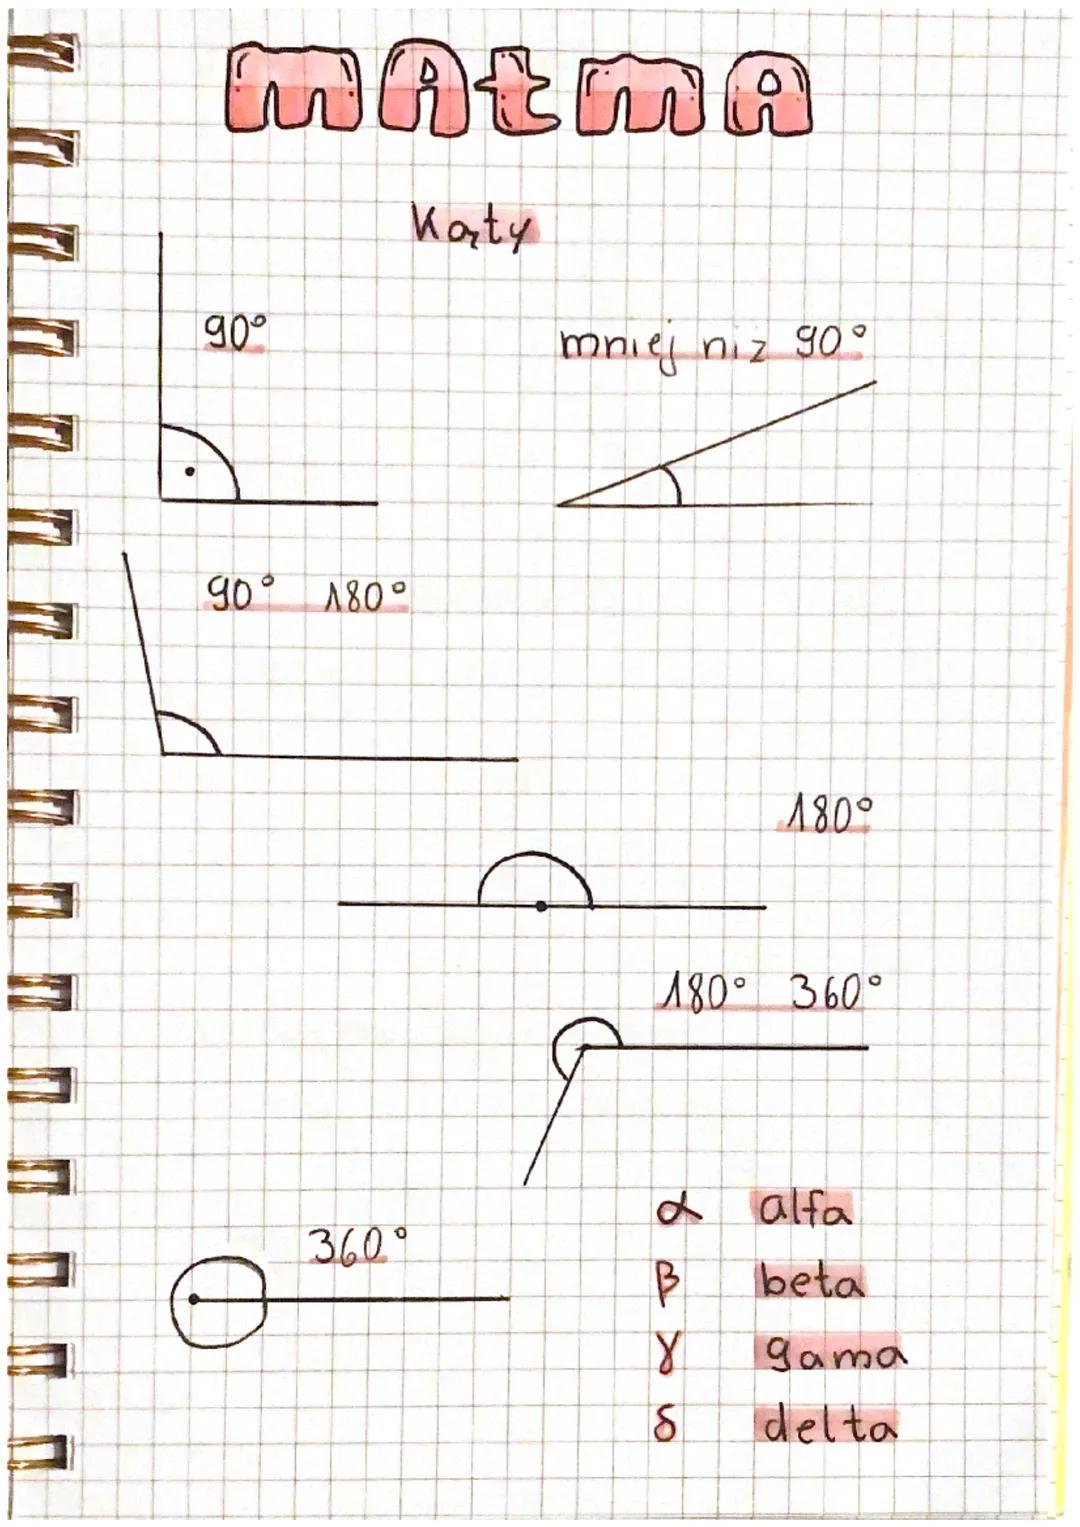 mAtmA
Kąty
90°
mniej niż 90°
90° 180°
180°
180° 360°
360°
α alfa
β beta
γ gama
δ delta